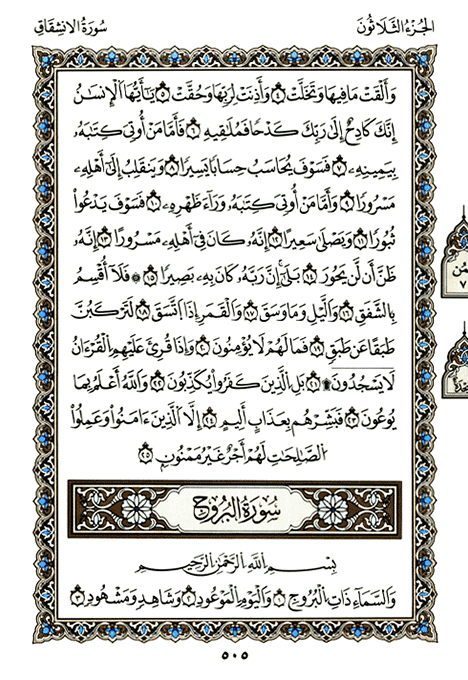 الجزء الثلاثون
سورة الانشقاق
وَأَلْقَتْ مَا فِيهَا وَتَخَلَّتْ ٤ وَأَذِنَتْ لِرَبِّهَا وَحُقَّتْ ٥ يَٰٓأَيُّهَا ٱلْإِنسَٰنُ
إِنَّكَ كَادِحٌ إِلَىٰ رَبِّكَ كَدْحًا فَمُلَٰقِيهِ ٦ فَأَمَّا مَنْ أُوتِىَ كِتَٰبَهُۥ
بِيَمِينِهِۦ ٧ فَسَوْفَ يُحَاسَبُ حِسَابًا يَسِيرًا ٨ وَيَنقَلِبُ إِلَىٰٓ أَهْلِهِۦ
مَسْرُورًا ٩ وَأَمَّا مَنْ أُوتِىَ كِتَٰبَهُۥ وَرَآءَ ظَهْرِهِۦ ١٠ فَسَوْفَ يَدْعُوا۟
ثُبُورًا ١١ وَيَصْلَىٰ سَعِيرًا ١٢ إِنَّهُۥ كَانَ فِىٓ أَهْلِهِۦ مَسْرُورًا ١٣ إِنَّهُۥ
ظَنَّ أَن لَّن يَحُورَ ١٤ بَلَىٰٓ إِنَّ رَبَّهُۥ كَانَ بِهِۦ بَصِيرًا ١٥ ۞ فَلَآ أُقْسِمُ
بِٱلشَّفَقِ ١٦ وَٱلَّيْلِ وَمَا وَسَقَ ١٧ وَٱلْقَمَرِ إِذَا ٱتَّسَقَ ١٨ لَتَرْكَبُنَّ
طَبَقًا عَن طَبَقٍ ١٩ فَمَا لَهُمْ لَا يُؤْمِنُونَ ٢٠ وَإِذَا قُرِئَ عَلَيْهِمُ ٱلْقُرْءَانُ
لَا يَسْجُدُونَ ۩ ٢١ بَلِ ٱلَّذِينَ كَفَرُوا۟ يُكَذِّبُونَ ٢٢ وَٱللَّهُ أَعْلَمُ بِمَا
يُوعُونَ ٢٣ فَبَشِّرْهُم بِعَذَابٍ أَلِيمٍ ٢٤ إِلَّا ٱلَّذِينَ ءَامَنُوا۟ وَعَمِلُوا۟
ٱلصَّٰلِحَٰتِ لَهُمْ أَجْرٌ غَيْرُ مَمْنُونٍ ٢٥
سُورَةُ البُرُوجِ
بِسْمِ ٱللَّهِ ٱلرَّحْمَٰنِ ٱلرَّحِيمِ
وَٱلسَّمَآءِ ذَاتِ ٱلْبُرُوجِ ١ وَٱلْيَوْمِ ٱلْمَوْعُودِ ٢ وَشَاهِدٍ وَمَشْهُودٍ ٣
٥٠٥